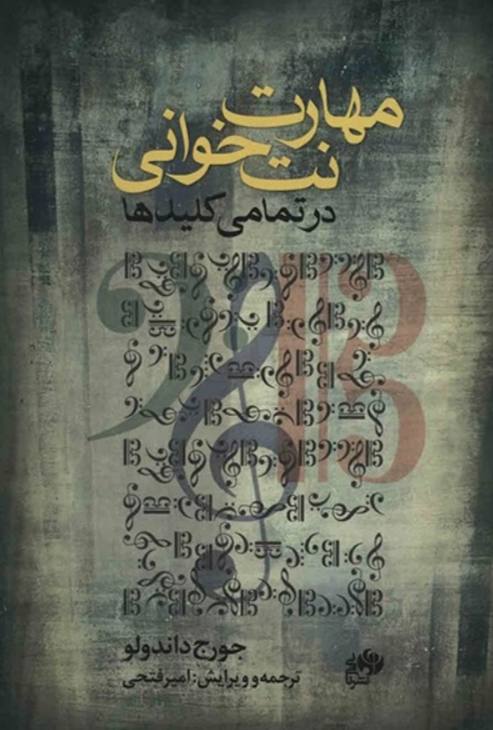 مهارت
نت‌خوانی
در تمامی کلیدها
جورج داندولو
ترجمه و ویرایش: امیر فتحی